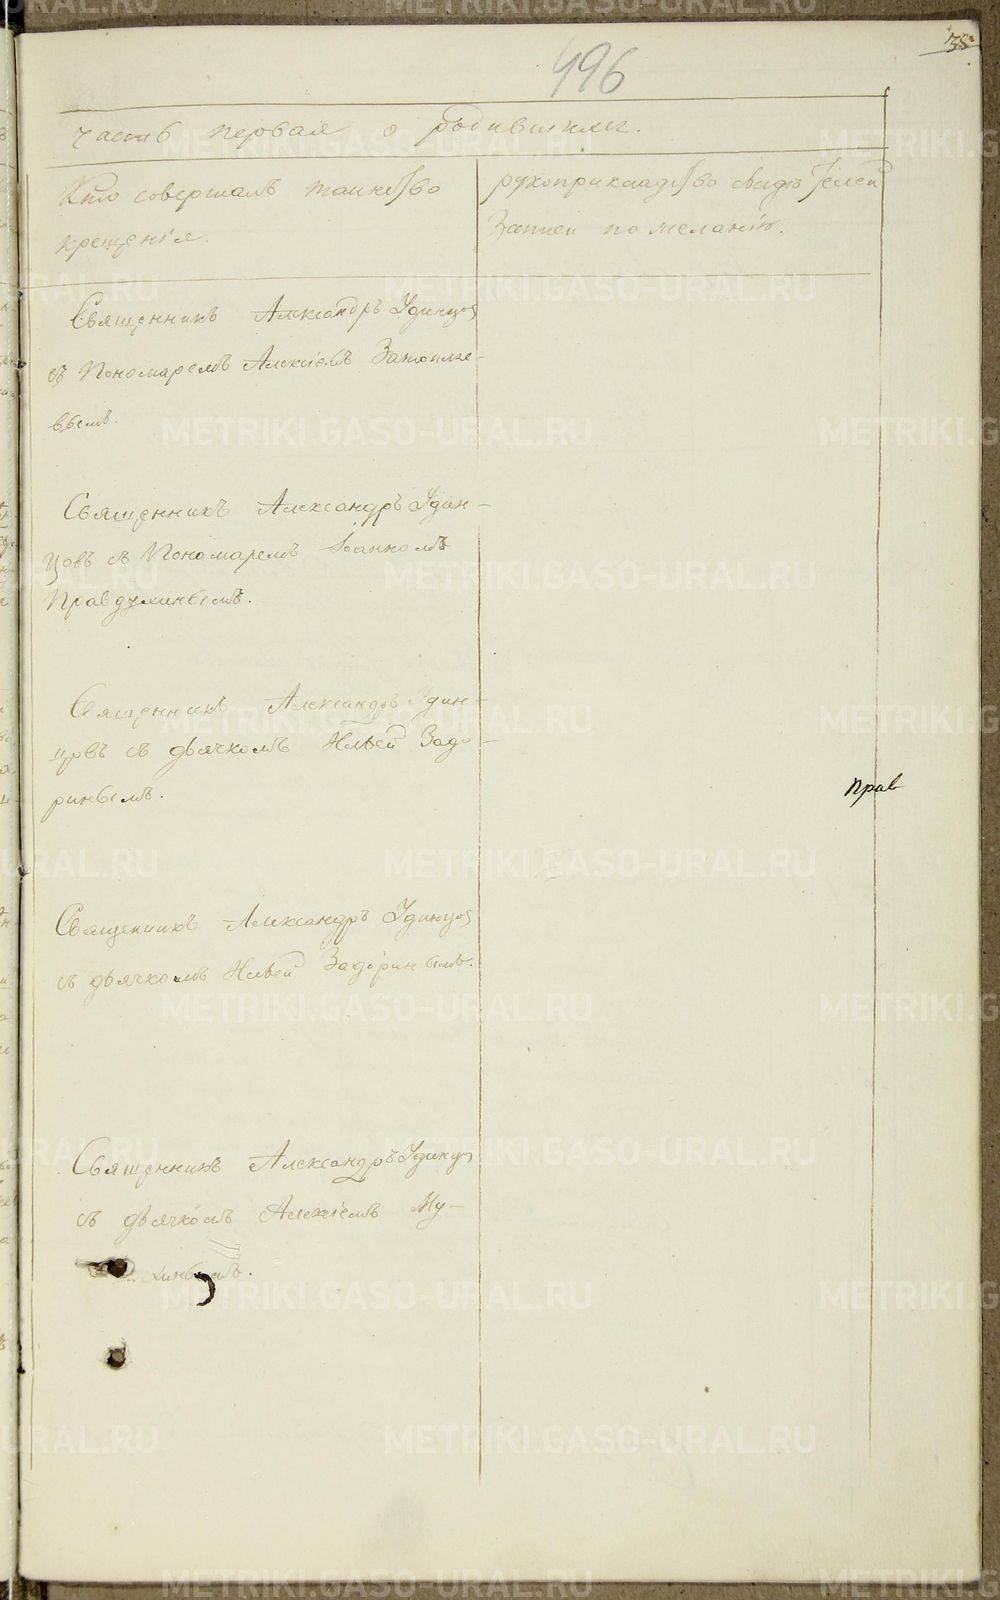 496
38
часть первая о родившихся.
Кто совершалъ таинство
крещенія.
рукоприкладство свидетелей
Записи по желанію.
Священникъ Александръ Удинцов
съ Пономаремъ Алексіевъ
вымъ.
Священникъ Александръ Удин-
цовъ съ Пономаремъ Іоанномъ
Правдухинымъ.
Священникъ Александръ Удин-
цовъ съ дьячкомъ Ильей Задо-
ринымъ.
Прав
Священникъ Александръ Удинцов
съ дьячкомъ Ильей Задоринымъ.
Священникъ Александръ Удинцов
съ дьячкомъ Алексіемъ Му-
METRIKI.GASO-URAL.RU